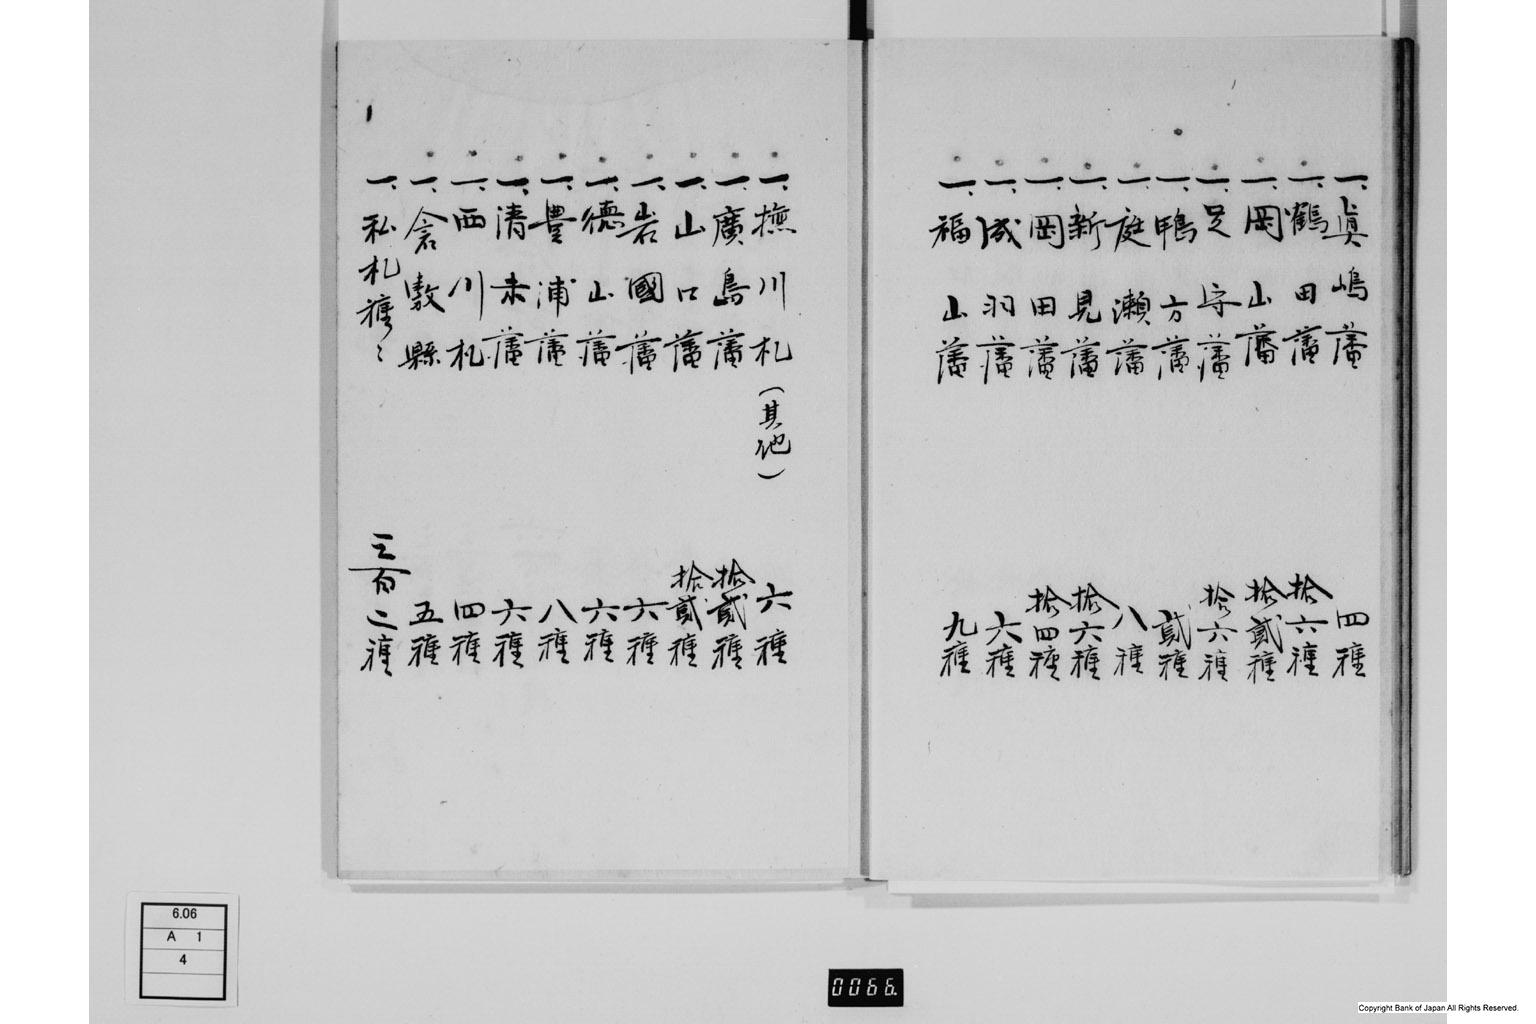 一、眞嶋藩 四種
一、鶴田藩 拾六種
一、岡山藩 拾貳種
一、足守藩 拾六種
一、鴨方藩 貳種
一、庭瀬藩 八種
一、新見藩 拾六種
一、岡田藩 拾四種
一、成羽藩 六種
一、福山藩 九種
一、撫川札(其他) 六種
一、廣島藩 拾貳種
一、山口藩 拾貳種
一、岩國藩 六種
一、德山藩 六種
一、豊浦藩 八種
一、清末藩 六種
一、西川札 四種
一、倉敷縣 五種
一、私札種々 三百二種
6.06
A 1
4
0066.
Copyright Bank of Japan All Rights Reserved.